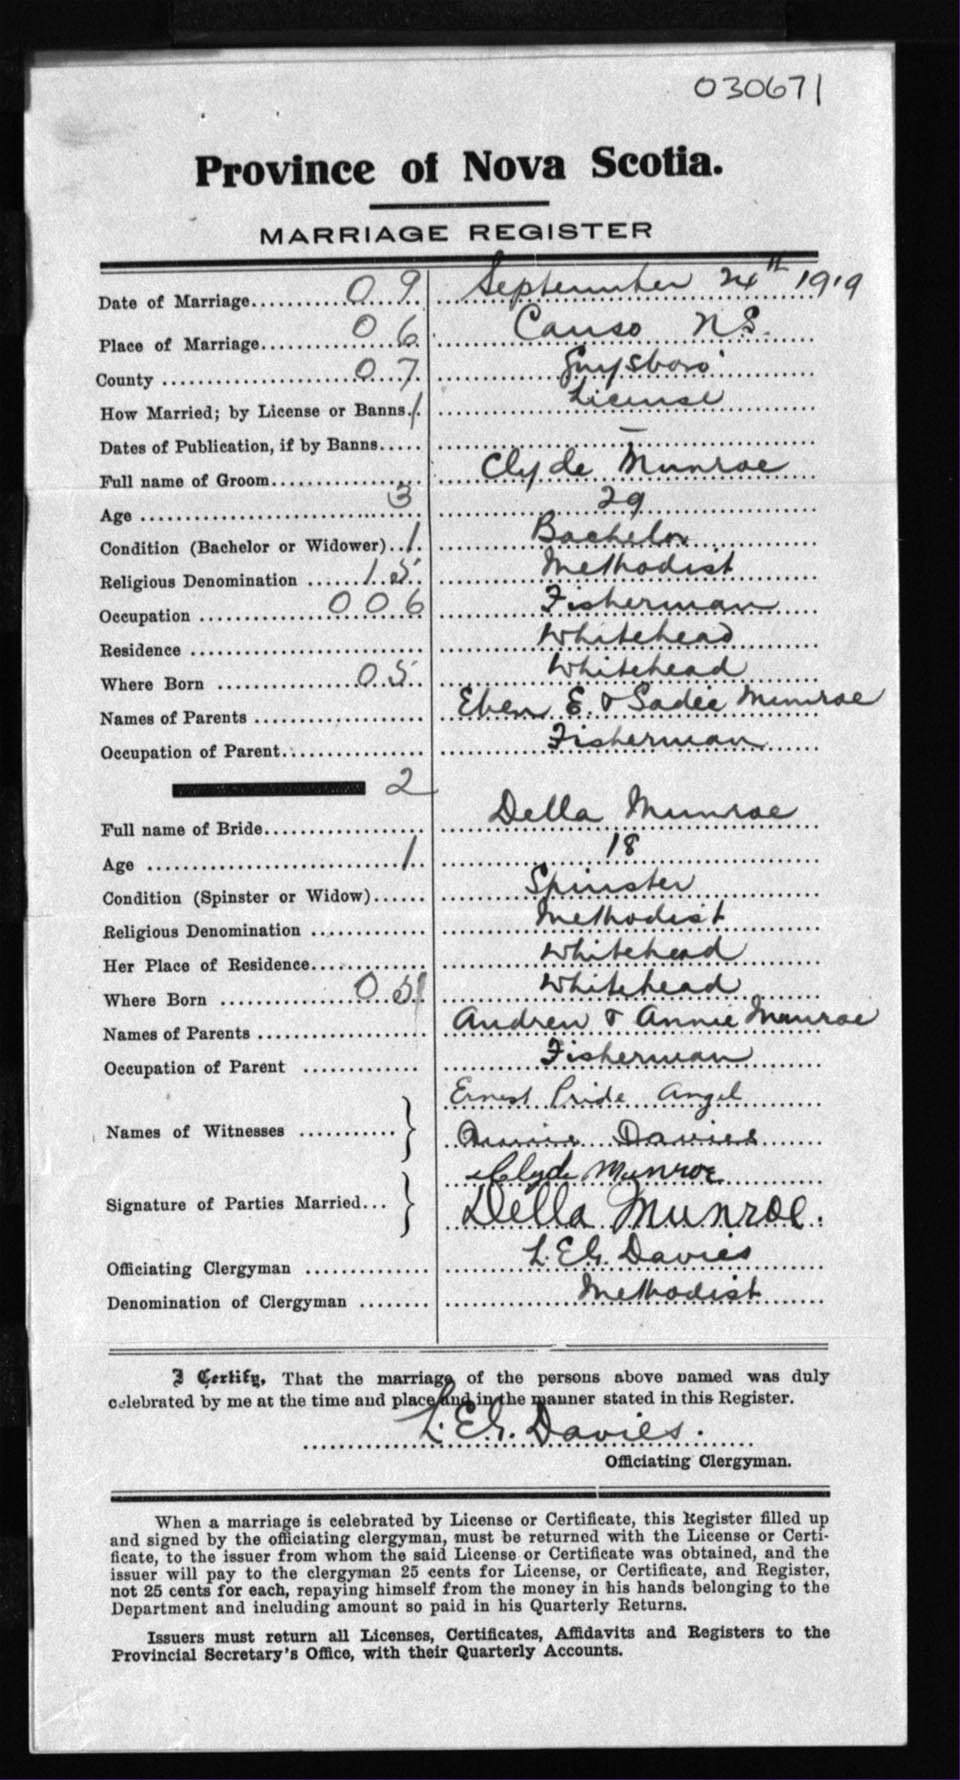 030671
Province of Nova Scotia.
MARRIAGE REGISTER
Date of Marriage.......... 0 9 September 24th 1919
Place of Marriage.......... 0 6 Canso N.S.
County .......... 0 7 Guysboro'
How Married; by License or Banns. 1 License
Dates of Publication, if by Banns..... –
Full name of Groom.......... Clyde Munroe
Age .......... 3 29
Condition (Bachelor or Widower).. 1 Bachelor
Religious Denomination ...... 1 5 Methodist
Occupation .......... 0 0 6 Fisherman
Residence .......... Whitehead
Where Born .......... 0 5 Whitehead
Names of Parents .......... Eben E. & Sadie Munroe
Occupation of Parent.......... Fisherman
2
Full name of Bride.......... Della Munroe
Age .......... 1 18
Condition (Spinster or Widow)...... Spinster
Religious Denomination .......... Methodist
Her Place of Residence.......... Whitehead
Where Born .......... 0 5 Whitehead
Names of Parents .......... Andrew & Annie Munroe
Occupation of Parent .......... Fisherman
Ernest Pride Angel
Names of Witnesses ..........
Davies
Clyde Munroe
Signature of Parties Married...
Della Munroe.
Officiating Clergyman .......... Davies
Denomination of Clergyman ........ Methodist
I Certify, That the marriage of the persons above named was duly
celebrated by me at the time and place and in the manner stated in this Register.
Davies.
Officiating Clergyman.
When a marriage is celebrated by License or Certificate, this Register filled up
and signed by the officiating clergyman, must be returned with the License or Certi-
ficate, to the issuer from whom the said License or Certificate was obtained, and the
issuer will pay to the clergyman 25 cents for License, or Certificate, and Register,
not 25 cents for each, repaying himself from the money in his hands belonging to the
Department and including amount so paid in his Quarterly Returns.
Issuers must return all Licenses, Certificates, Affidavits and Registers to the
Provincial Secretary's Office, with their Quarterly Accounts.